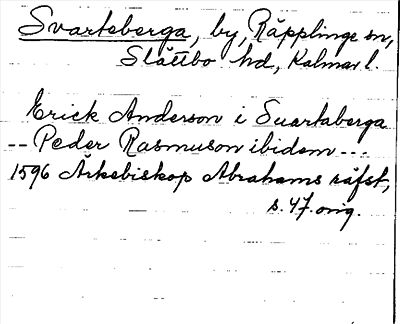 Svarteberga, by, Räpplinge sn,
Slättbo hd, Kalmar l.
Erick Anderson i Suartaberga
-- Peder Rasmuson ibidem ---
1596 Ärkebiskop Abrahams räfst,
s. 47. orig.